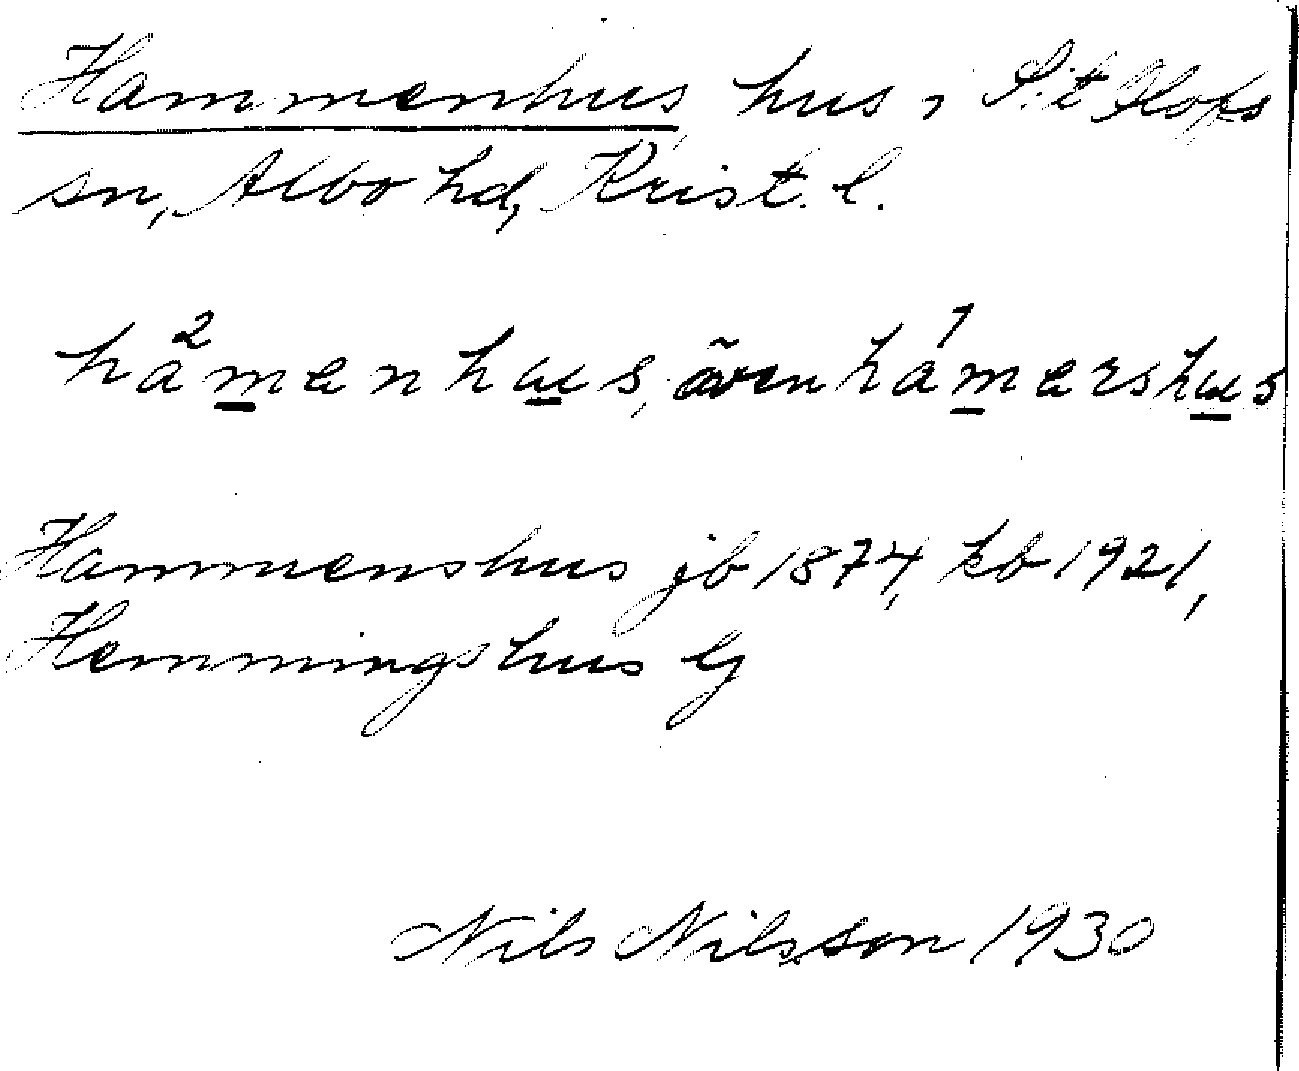 Hammenhus, hus i S:t Olofs
sn, Albo hd, Krist. l.
hå²menhus, även há¹mershus
Hammenshus jb 1874, kb 1921,
Hemmingshus G
Nils Nilsson 1930